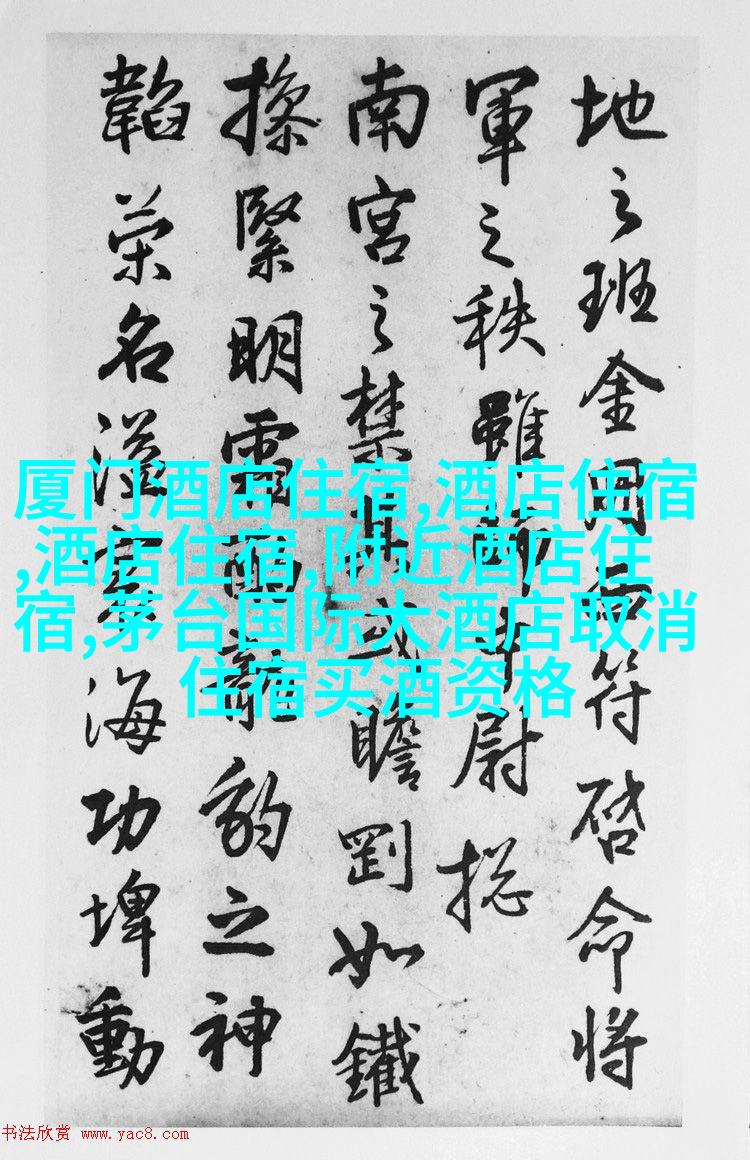 地之班金用符啓命将
軍之秩雖中尉揔
南宮之禁或瞻罰如鐵
操緊明霜豹之神
韜榮名溢海功埤動
厦门酒店住宿,酒店住宿
,酒店住宿,附近酒店住
宿,茅台国际大酒店取消
住宿买酒资格
书法欣赏 www.yac8.com